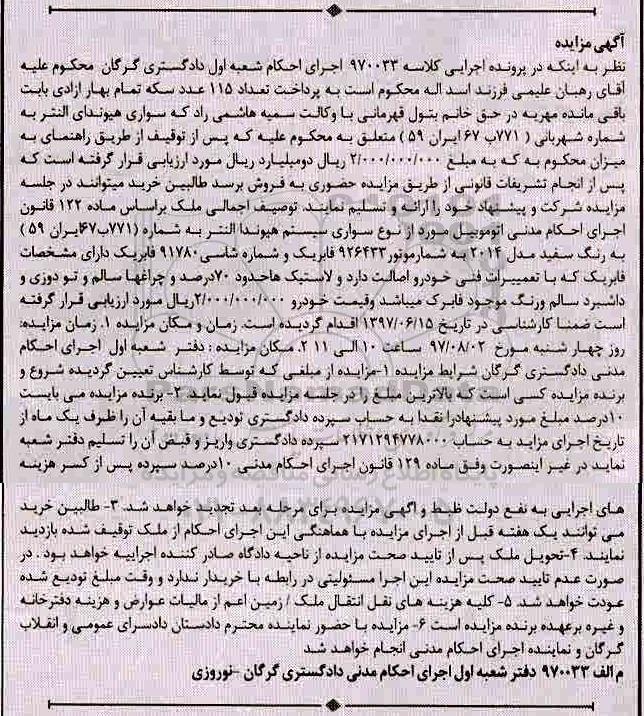 آگهی مزایده
نظر به اینکه در پرونده اجرایی کلاسه ۹۷۰۰۳۳ اجرای احکام شعبه اول دادگستری گرگان محکوم علیه
آقای رهبان علیمی فرزند اسد اله محکوم است به پرداخت تعداد ۱۱۵ عدد سکه تمام بهار ازادی بابت
باقی مانده مهریه در حق خانم بتول قهرمانی با وکالت سمیه هاشمی راد که سواری هیوندای النتر به
شماره شهربانی ( ۷۷۱ب ۶۷ ایران ۵۹ ) متعلق به محکوم علیه که پس از توقیف از طریق راهنمای به
میزان محکوم به که به مبلغ ۲/۰۰۰/۰۰۰/۰۰۰ ریال دومیلیارد ریال مورد ارزیابی قرار گرفته است که
پس از انجام تشریفات قانونی از طریق مزایده حضوری به فروش برسد طالبین خرید میتوانند در جلسه
مزایده شرکت و پیشنهاد خود را ارائه و تسلیم نمایند. توصیف اجمالی ملک براساس ماده ۱۲۲ قانون
اجرای احکام مدنی اتوموبیل مورد از نوع سواری سیستم هیوندا النتر به شماره (۷۷۱ب۶۷ایران ۵۹ )
به رنگ سفید مدل ۲۰۱۴ به شمارموتور۹۲۶۴۳۳ فابریک و شماره شاسی۹۱۷۸۰ فابریک دارای مشخصات
فابریک که با تعمییرات فنی خودرو اصالت دارد و لاستیک هاحدود ۷۰درصد و چراغها سالم و تو دوزی و
داشبرد سالم ورنگ موجود فابرک میباشد وقیمت خودرو ۲/۰۰۰/۰۰۰/۰۰۰ریال مورد ارزیابی قرار گرفته
است ضمنا کارشناسی در تاریخ ۱۳۹۷/۰۶/۱۵ اقدام گردیده است. زمان و مکان مزایده ۱. زمان مزایده:
روز چهار شنبه مورخ ۹۷/۰۸/۰۲ ساعت ۱۰ الی ۱۱ ۲. مکان مزایده : دفتر شعبه اول اجرای احکام
مدنی دادگستری گرگان شرایط مزایده ۱-مزایده از مبلغی که توسط کارشناس تعیین گردیده شروع و
برنده مزایده کسی است که بالاترین مبلغ را در جلسه مزایده قبول نماید ۲- برنده مزایده می بایست
۱۰درصد مبلغ مورد پیشنهادرا نقدا به حساب سپرده دادگستری تودیع و ما بقیه آن را ظرف یک ماه از
تاریخ اجرای مزاید به حساب ۲۱۷۱۲۹۴۷۷۸۰۰۰ سپرده دادگستری واریز و قبض آن را تسلیم دفتر شعبه
نماید در غیر اینصورت وفق ماده ۱۲۹ قانون اجرای احکام مدنی ۱۰درصد سپرده پس از کسر هزینه
های اجرایی به نفع دولت ظبط و اگهی مزایده برای مرحله بعد تجدید خواهد شد. ۳- طالبین خرید
می توانند یک هفته قبل از اجرای مزایده با هماهنگی این اجرای احکام از ملک توقیف شده بازدید
نمایند. ۴-تحویل ملک پس از تایید صحت مزایده از ناحیه دادگاه صادر کننده اجراییه خواهد بود . در
صورت عدم تایید صحت مزایده این اجرا مسئولیتی در رابطه با خریدار ندارد و وقت مبلغ تودیع شده
عودت خواهد شد. ۵- کلیه هزینه های نقل انتقال ملک / زمین اعم از مالیات عوارض و هزینه دفترخانه
و غیره برعهده برنده مزایده است ۶- مزایده با حضور نماینده محترم دادستان دادسرای عمومی و انقلاب
گرگان و نماینده اجرای احکام مدنی انجام خواهد شد
م الف ۹۷۰۰۳۳ دفتر شعبه اول اجرای احکام مدنی دادگستری گرگان -نوروزی